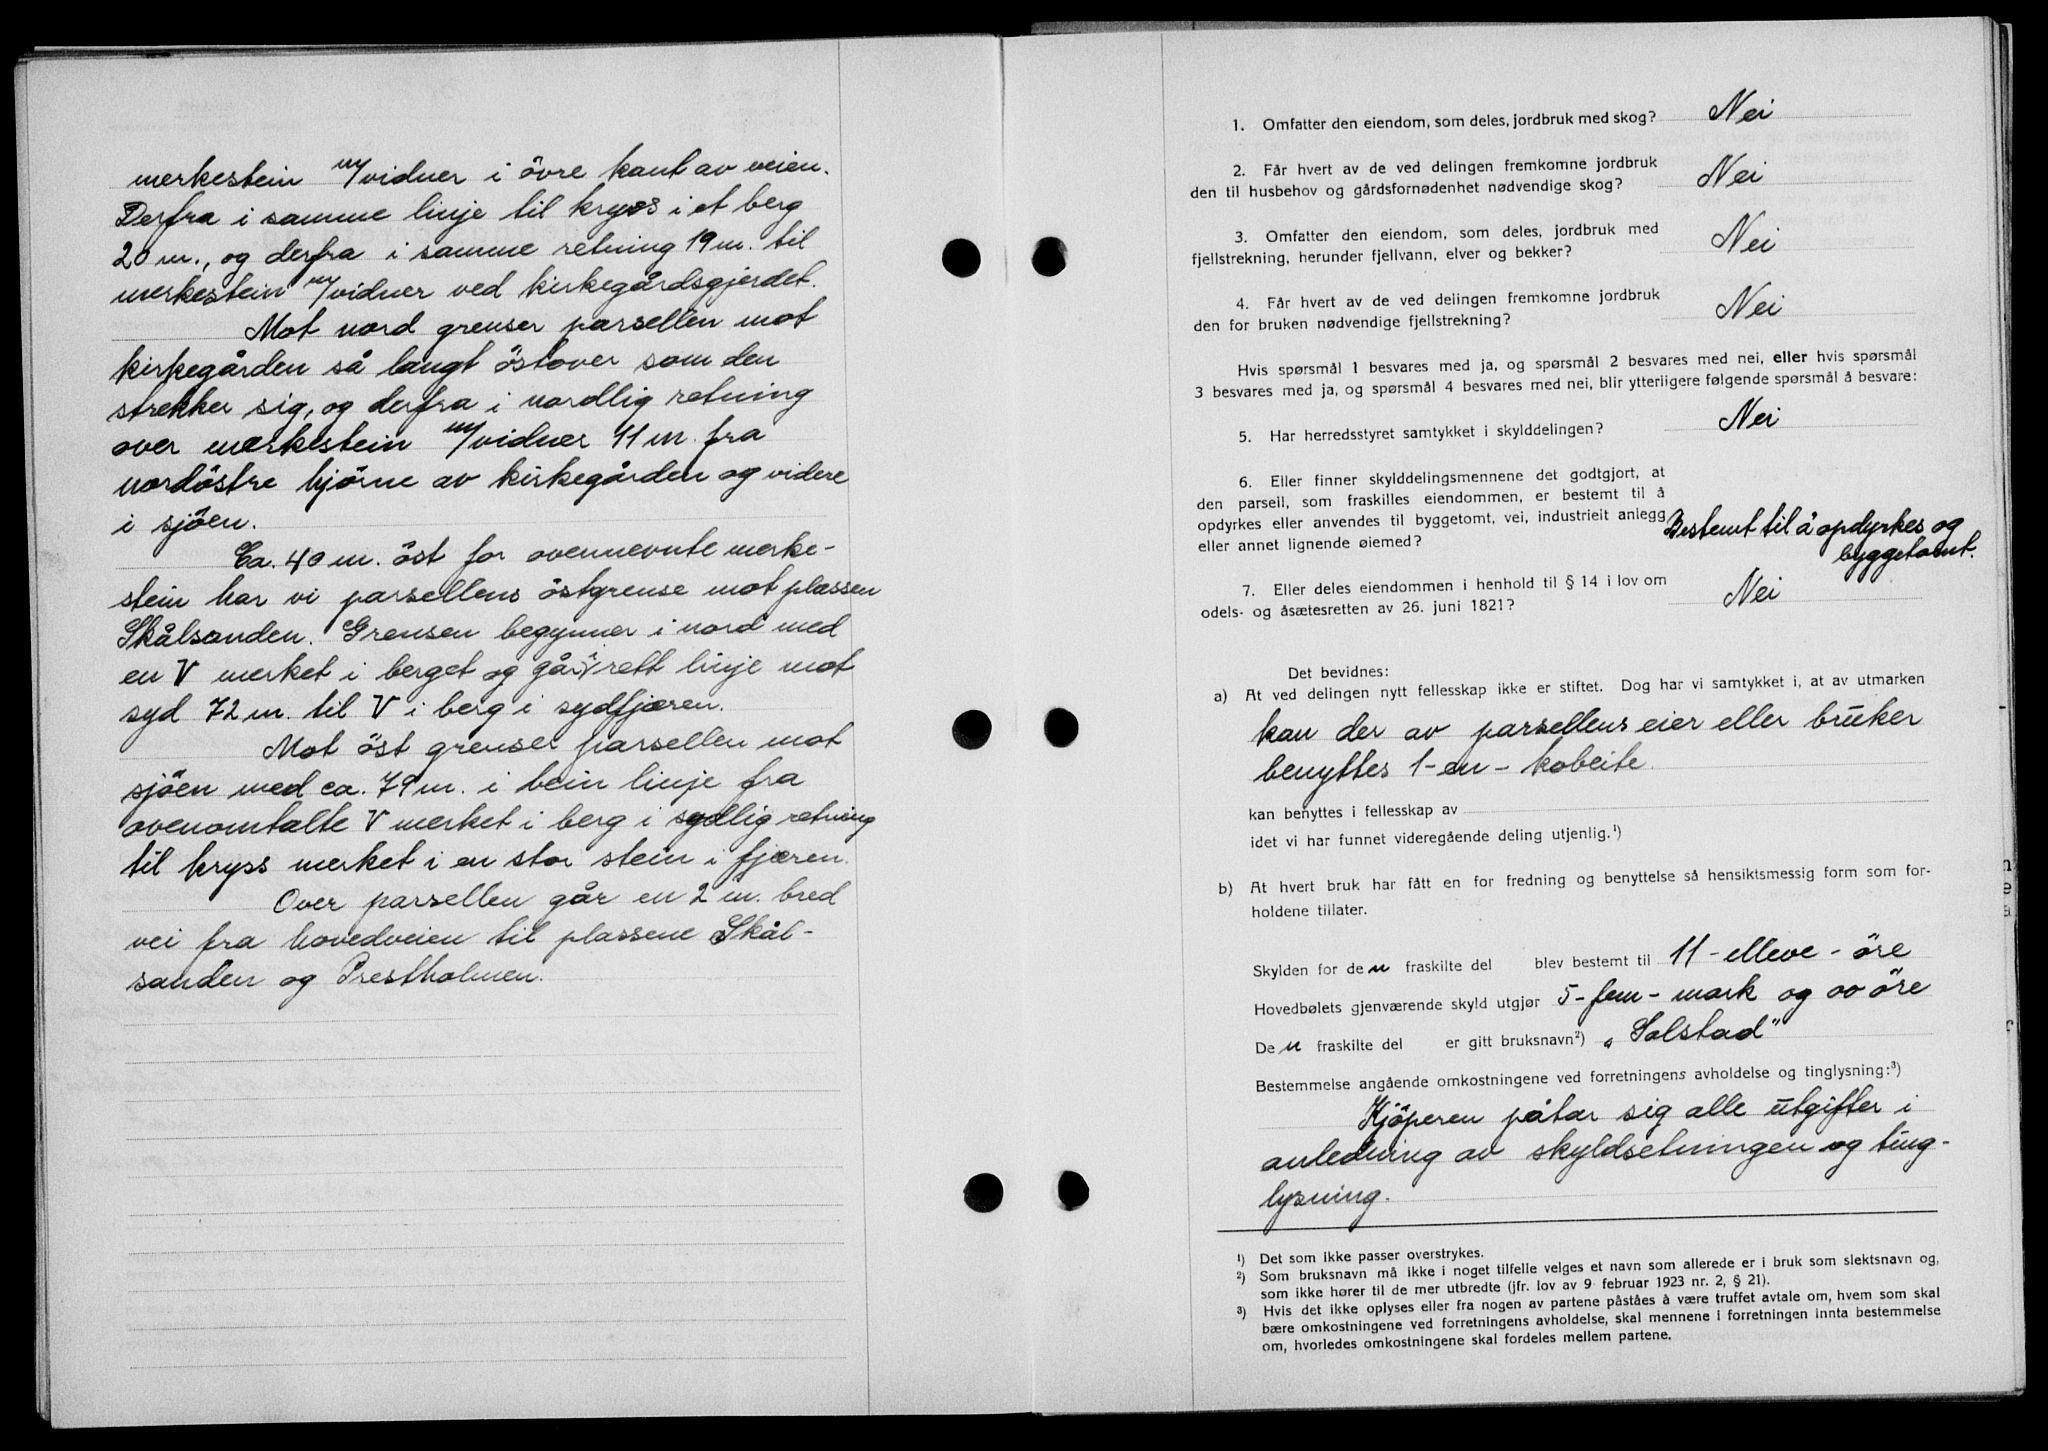 merkestein m/vidner i övre kant av veien.
Derfra i samme linje til kryss i et berg
20 m., og derfra i samme retning 19 m. til
merkestein m/vidner ved kirkegårdsgjerdet.
Mot nord grenser parsellen mot
kirkegården så langt östover som den
strekker sig, og derfra i nordlig retning
over merkestein m/vidner 11 m. fra
nordöstre hjörne av kirkegården og videre
i sjöen.
Ca. 40 m. öst for ovennevnte merke-
stein har vi parsellens östgrense mot plassen
Skålsanden. Grensen begynner i nord med
en V merket i berget og går i rett linje mot
syd 72 m. til V i berg i sydfjæren.
Mot öst grenser parsellen mot
sjöen med ca. 79 m. i bein linje fra
ovenomtalte V merket i berg i sydlig retning
til kryss merket i en stor stein i fjæren.
Over parsellen går en 2 m. bred
vei fra hovedveien til plassene Skål-
sanden og Prestholmen.
1. Omfatter den eiendom, som deles, jordbruk med skog? Nei
2. Får hvert av de ved delingen fremkomne jordbruk
den til husbehov og gårdsfornødenhet nødvendige skog? Nei
3. Omfatter den eiendom, som deles, jordbruk med
fjellstrekning, herunder fjellvann, elver og bekker? Nei
4. Får hvert av de ved delingen fremkomne jordbruk
den for bruken nødvendige fjellstrekning? Nei
Hvis spørsmål 1 besvares med ja, og spørsmål 2 besvares med nei, eller hvis spørsmål
3 besvares med ja, og spørsmål 4 besvares med nei, blir ytterligere følgende spørsmål å besvare:
5. Har herredsstyret samtykket i skylddelingen? Nei
6. Eller finner skylddelingsmennene det godtgjort, at
den parsell, som fraskilles eiendommen, er bestemt til å
opdyrkes eller anvendes til byggetomt, vei, industrielt anlegg
eller annet lignende øiemed? Bestemt til å opdyrkes og
byggetomt.
7. Eller deles eiendommen i henhold til § 14 i lov om
odels- og åsætesretten av 26. juni 1821? Nei
Det bevidnes:
a) At ved delingen nytt fellesskap ikke er stiftet. Dog har vi samtykket i, at av utmarken
kan der av parsellens eier eller bruker
benyttes 1-en-kobeite.
kan benyttes i fellesskap av
idet vi har funnet videregående deling utjenlig.¹)
b) At hvert bruk har fått en for fredning og benyttelse så hensiktsmessig form som for-
holdene tillater.
Skylden for den fraskilte del blev bestemt til 11 - elleve - öre
Hovedbølets gjenværende skyld utgjør 5 - fem - mark og 00 öre
Den fraskilte del er gitt bruksnavn²) „Solstad"
Bestemmelse angående omkostningene ved forretningens avholdelse og tinglysning:³)
Kjöperen påtar sig alle utgifter i
anledning av skyldsetningen og ting-
lysning.
¹) Det som ikke passer overstrykes.
²) Som bruksnavn må ikke i noget tilfelle velges et navn som allerede er i bruk som slektsnavn og,
som ikke hører til de mer utbredte (jfr. lov av 9 februar 1923 nr. 2, § 21).
³) Hvis det ikke oplyses eller fra nogen av partene påståes å være truffet avtale om, hvem som skal
bære omkostningene ved forretningens avholdelse, skal mennene i forretningen innta bestemmelse
om, hvorledes omkostningene skal fordeles mellem partene.